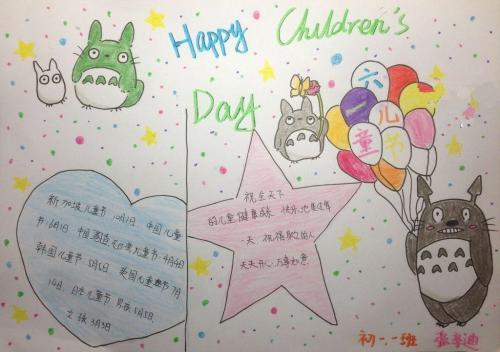 Happy Children's
Day
六
一
儿
童
节
新加坡儿童节 10月1日 中国儿童
节:6月1日 中国香港 儿童节:4月4日
韩国儿童节 5月5日 英国儿童节 7月
14日. 日本儿童节 男孩5月5日
女孩3月3日
祝全天下
的儿童健康成长 快乐
一天 祝福
天天开心.万事如意.
初一.一班